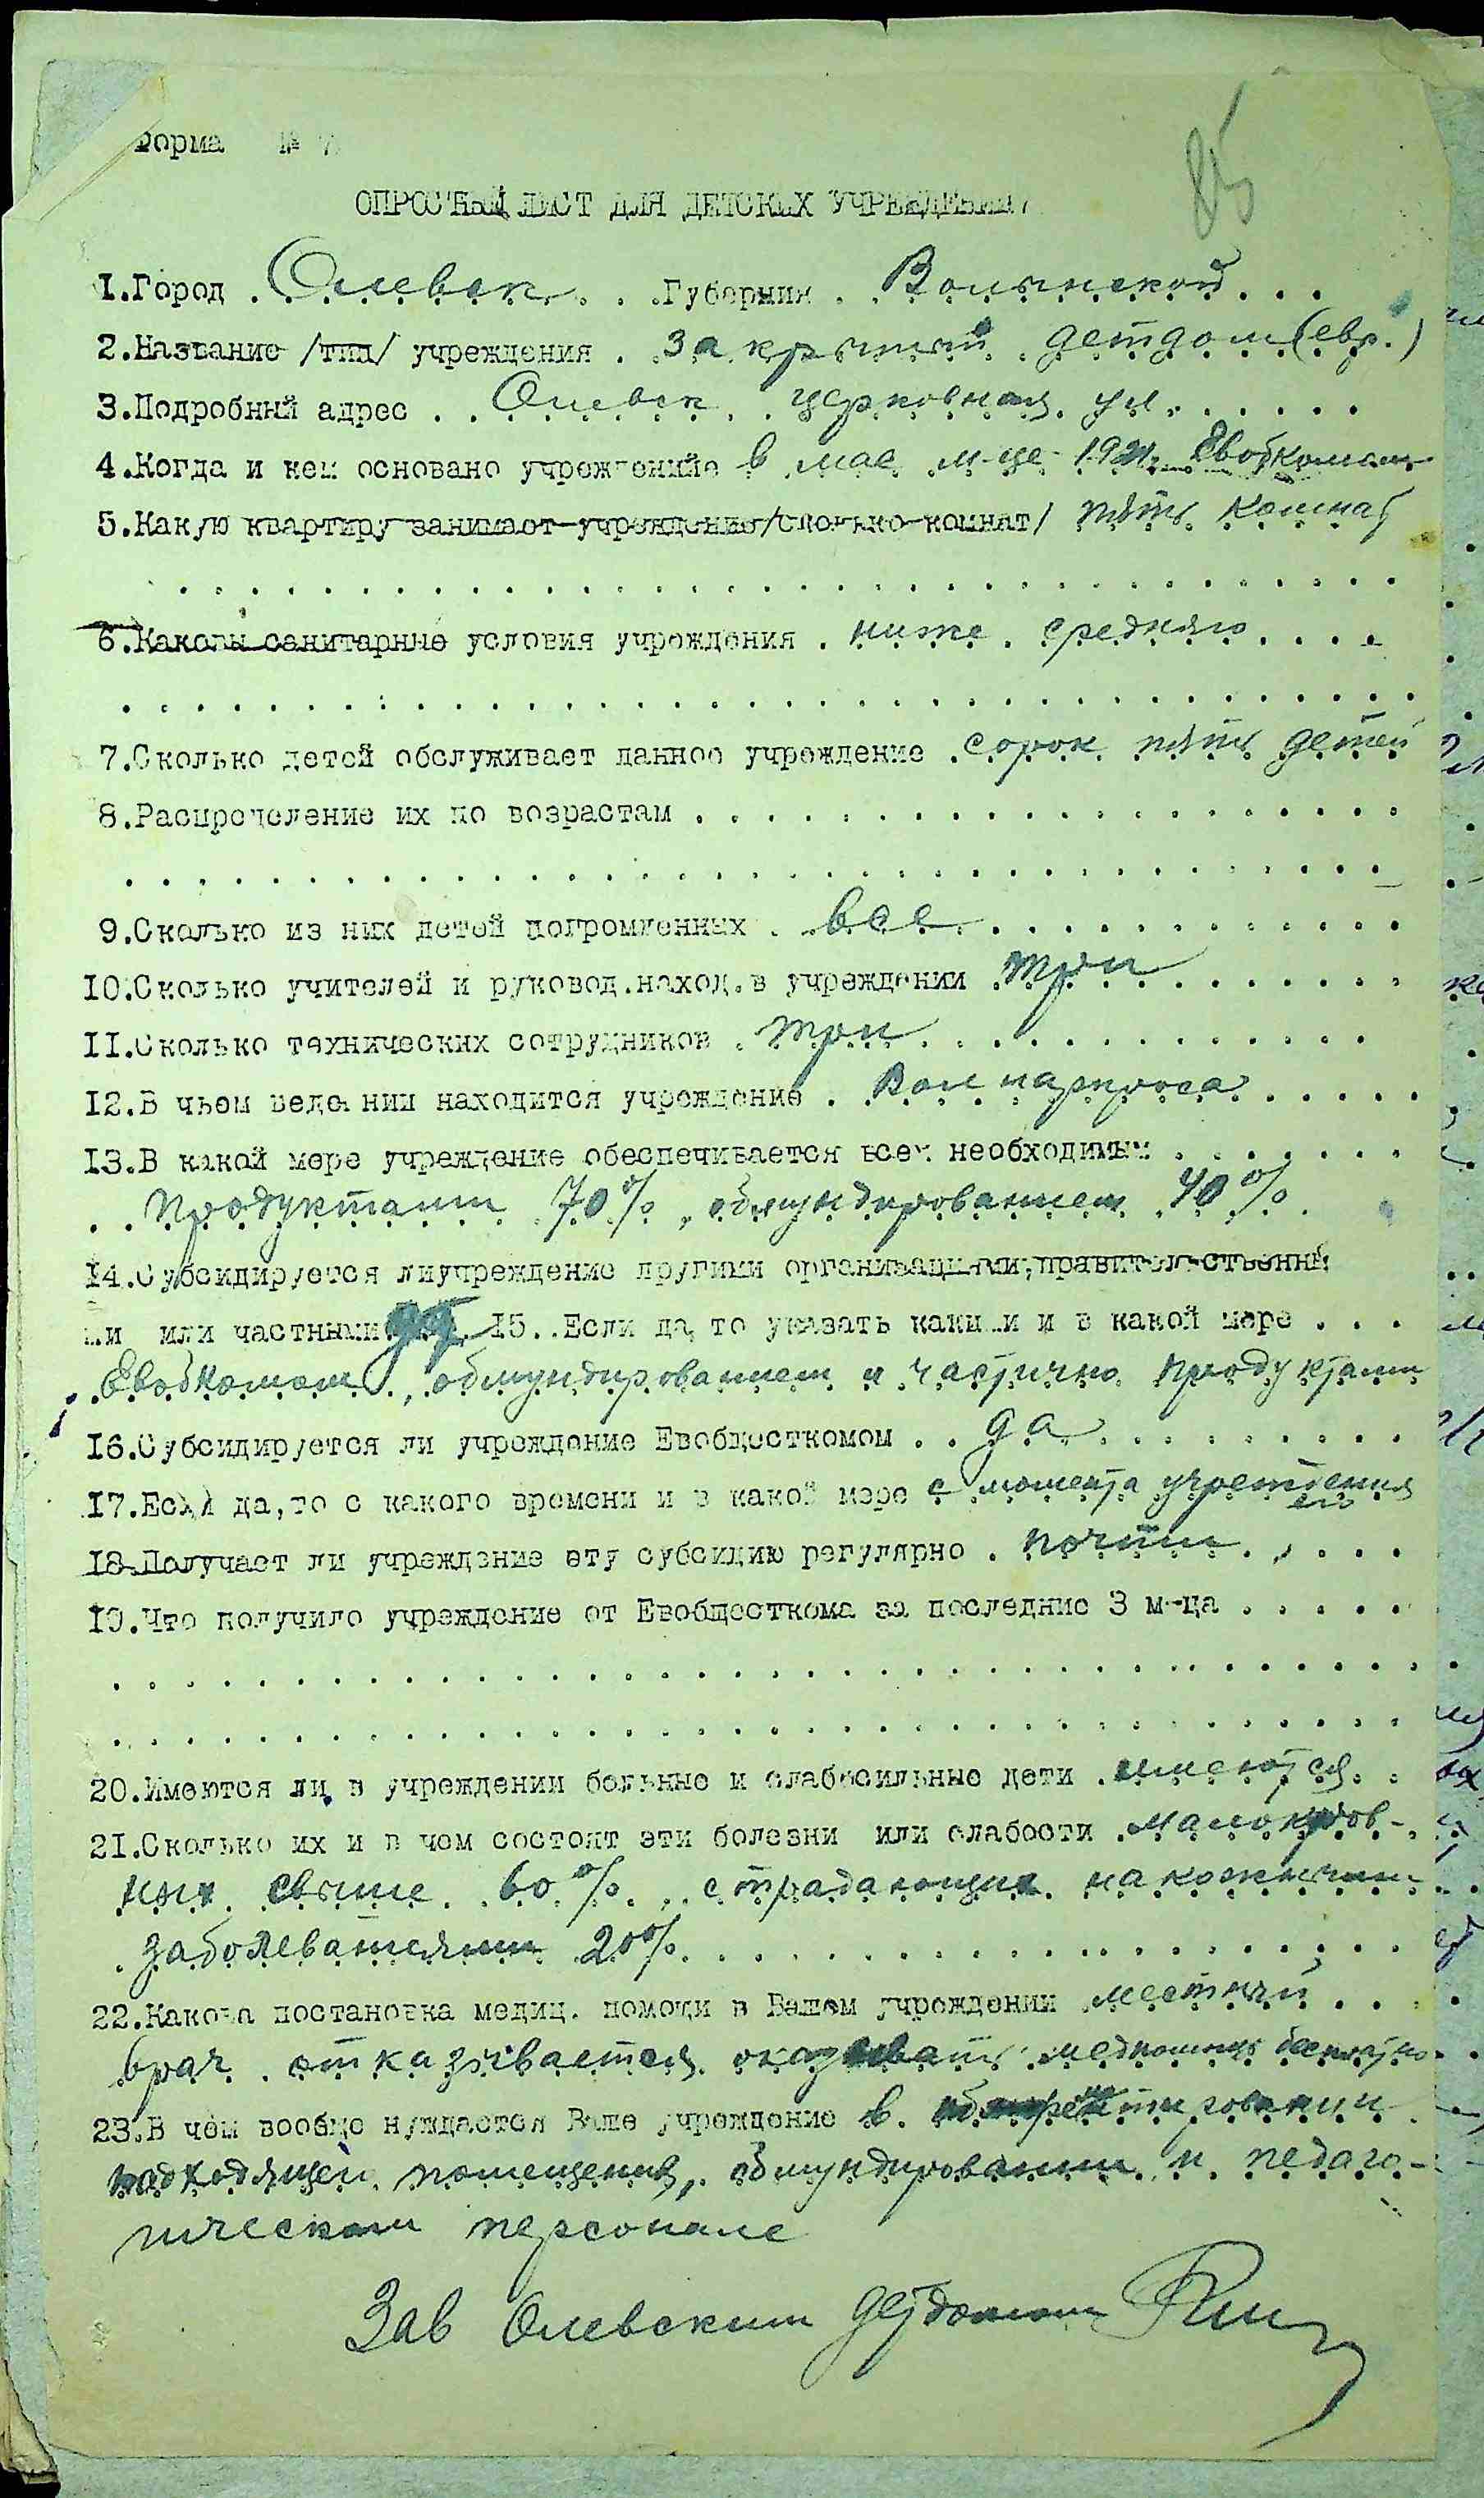 85
Форма №
ОПРОСНЫЙ ЛИСТ ДЛЯ ДЕТСКИХ УЧРЕЖДЕНИЙ
1.Город . Олевск . . . Губернии . Волынской . . .
2.Название /тип/ учреждения . закрытый детдом (евр.)
3.Подробный адрес . . Олевск . церковная ул. . . . . .
4.Когда и кем основано учреждение в мае м-це 1921. Евобкомом
5.Какую квартиру занимает учреждение/сколько комнат/ пять комнат
6.Каковы санитарные условия учреждения . ниже среднего . . . .
7.Сколько детей обслуживает данное учреждение . сорок пять детей
8.Распределение их по возрастам . . . . . . . . . . . . . . . . . . . .
9.Сколько из них детей погромленных . . все . . . . . . . . . . . .
10.Сколько учителей и руковод.наход.в учреждении три . . . . . . . .
11.Сколько технических сотрудников . три . . . . . . . . . . . . .
12.В чьем ведении находится учреждение . Вол наркроса . . . . .
13.В какой мере учреждение обеспечивается всем необходимым . . . . . . .
. . продуктами 70%, обмундированием 40% .
14.Субсидируется лиучреждение другими организациями,правительственны
ми или частными да 15..Если да, то указать какими и в какой мере . . .
. Евобкомом, обмундированием и частично продуктами
16.Субсидируется ли учреждение Евобщесткомом . . да . . . . . . . . .
17.Если да,то с какого времени и в какой мере с момента учреждения
его
18.Получает ли учреждение эту субсидию регулярно . почти . . . . .
19.Что получило учреждение от Евобщесткома за последние 3 м-ца . . . . .
20.Имеются ли в учреждении больные и слабосильные дети . имеются . .
21.Сколько их и в чем состоят эти болезни или слабости . малокров-
ных свыше 60%, страдающих накожными
заболеваниями 20% . . . . . . . . . . . . . . . . . . .
22.Какова постановка медиц. помощи в Вашем учреждении . местный . . . .
врач отказывается оказывать медпомощь бесплатно
23.В чем вообще нуждается Ваше учреждение в.
подходящей помещения, обмундировании и педаго-
гическом персонале
Зав Олевским детдомом